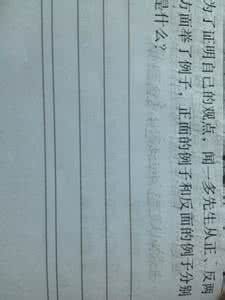 为了证明自己的观点，闻一多先生从正、反两
方面举了例子，正面的例子和反面的例子分别
是什么？